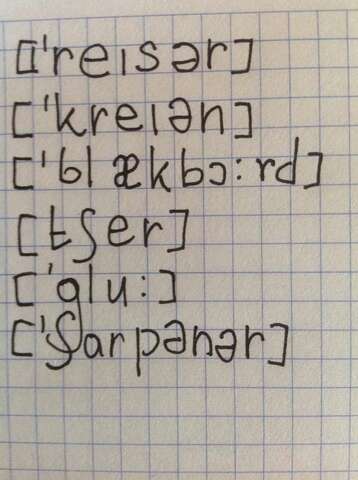 [ˈreısər]
[ˈkreıən]
[ˈblækbɔːrd]
[tʃer]
[ˈgluː]
[ˈʃarpənər]